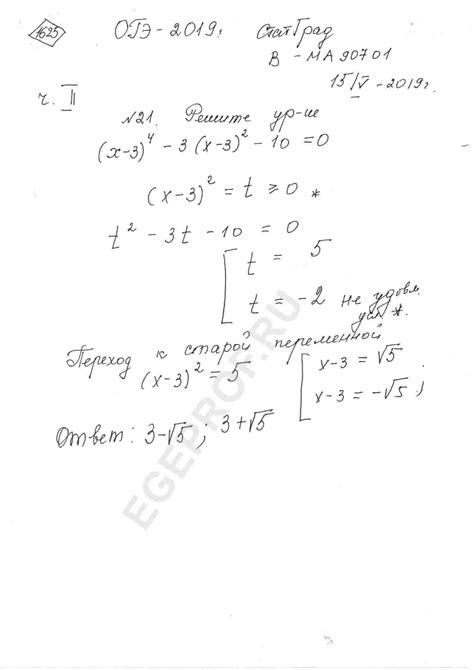 1625
ОГЭ - 2019г. СтатГрад
В - МА90701
15/V - 2019г.
ч. II
№21. Решите ур-ие
(x-3)⁴ - 3(x-3)² - 10 = 0
(x-3)² = t ≥ 0 *
t² - 3t - 10 = 0
[ t = 5
t = -2 не удовл.
усл *.
Переход к старой переменной
(x-3)² = 5 [ x-3 = √5
x-3 = -√5 ;
Ответ: 3-√5 ; 3+√5
EGEPROF.RU